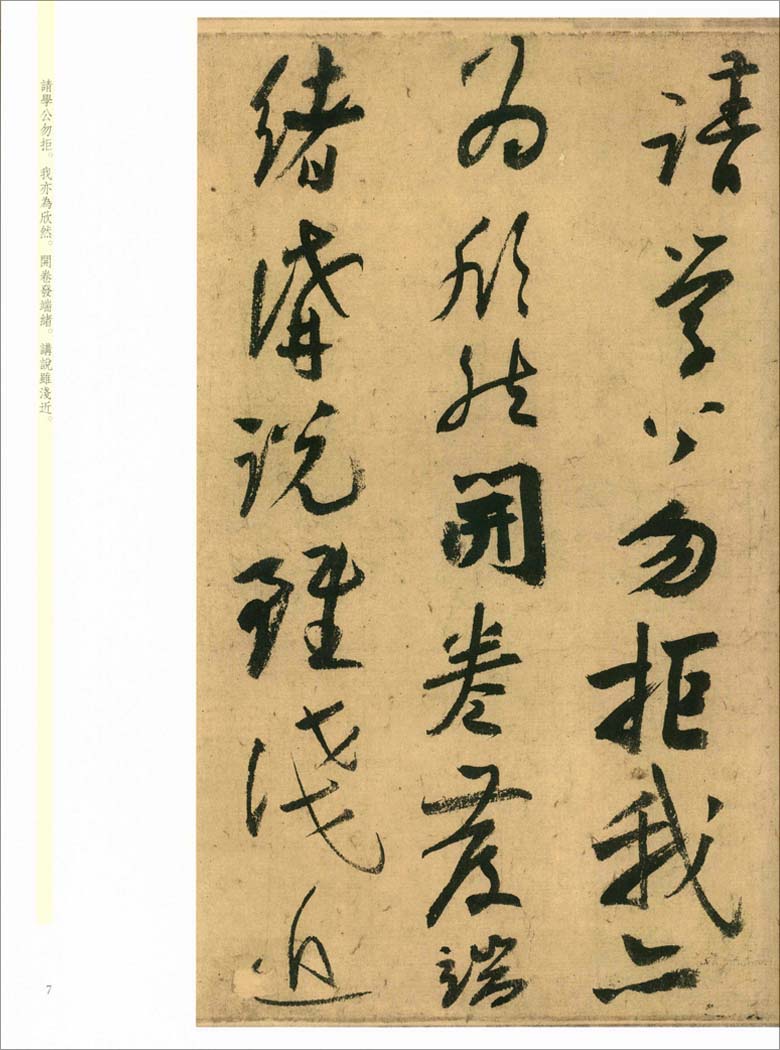 請學公勿拒我亦
為欣然開卷發端
緒講說雖淺近
請學公勿拒。我亦為欣然。開卷發端緒。講說雖淺近。
7